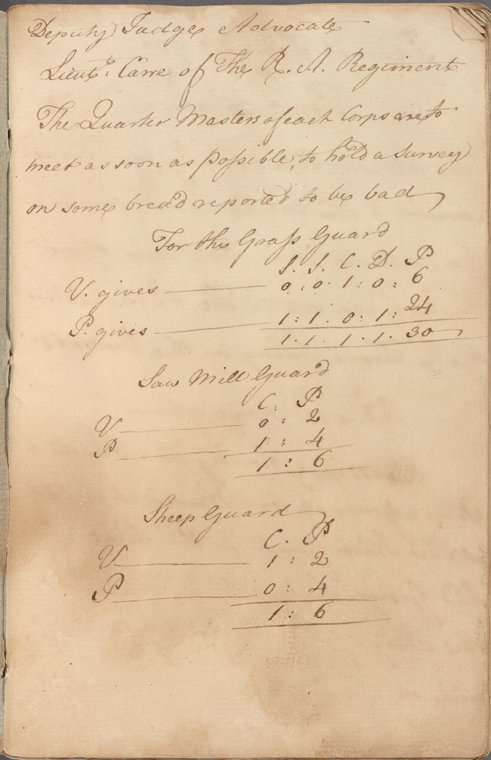 Deputy Judge Advocate
Lieut: Carre of The R. A. Regiment
The Quarter Masters of each Corps are to
meet as soon as possible, to hold a Survey
on some bread reported to be bad
For the Grass Guard
S. S. C. D. P
V. gives 0: 0. 1: 0: 6
P. gives 1: 1. 0. 1: 24
1. 1. 1. 1. 30
Saw Mill Guard
C. P
V 0: 2
P 1: 4
1: 6
Sheep Guard
C. P
V 1: 2
P 0: 4
1: 6